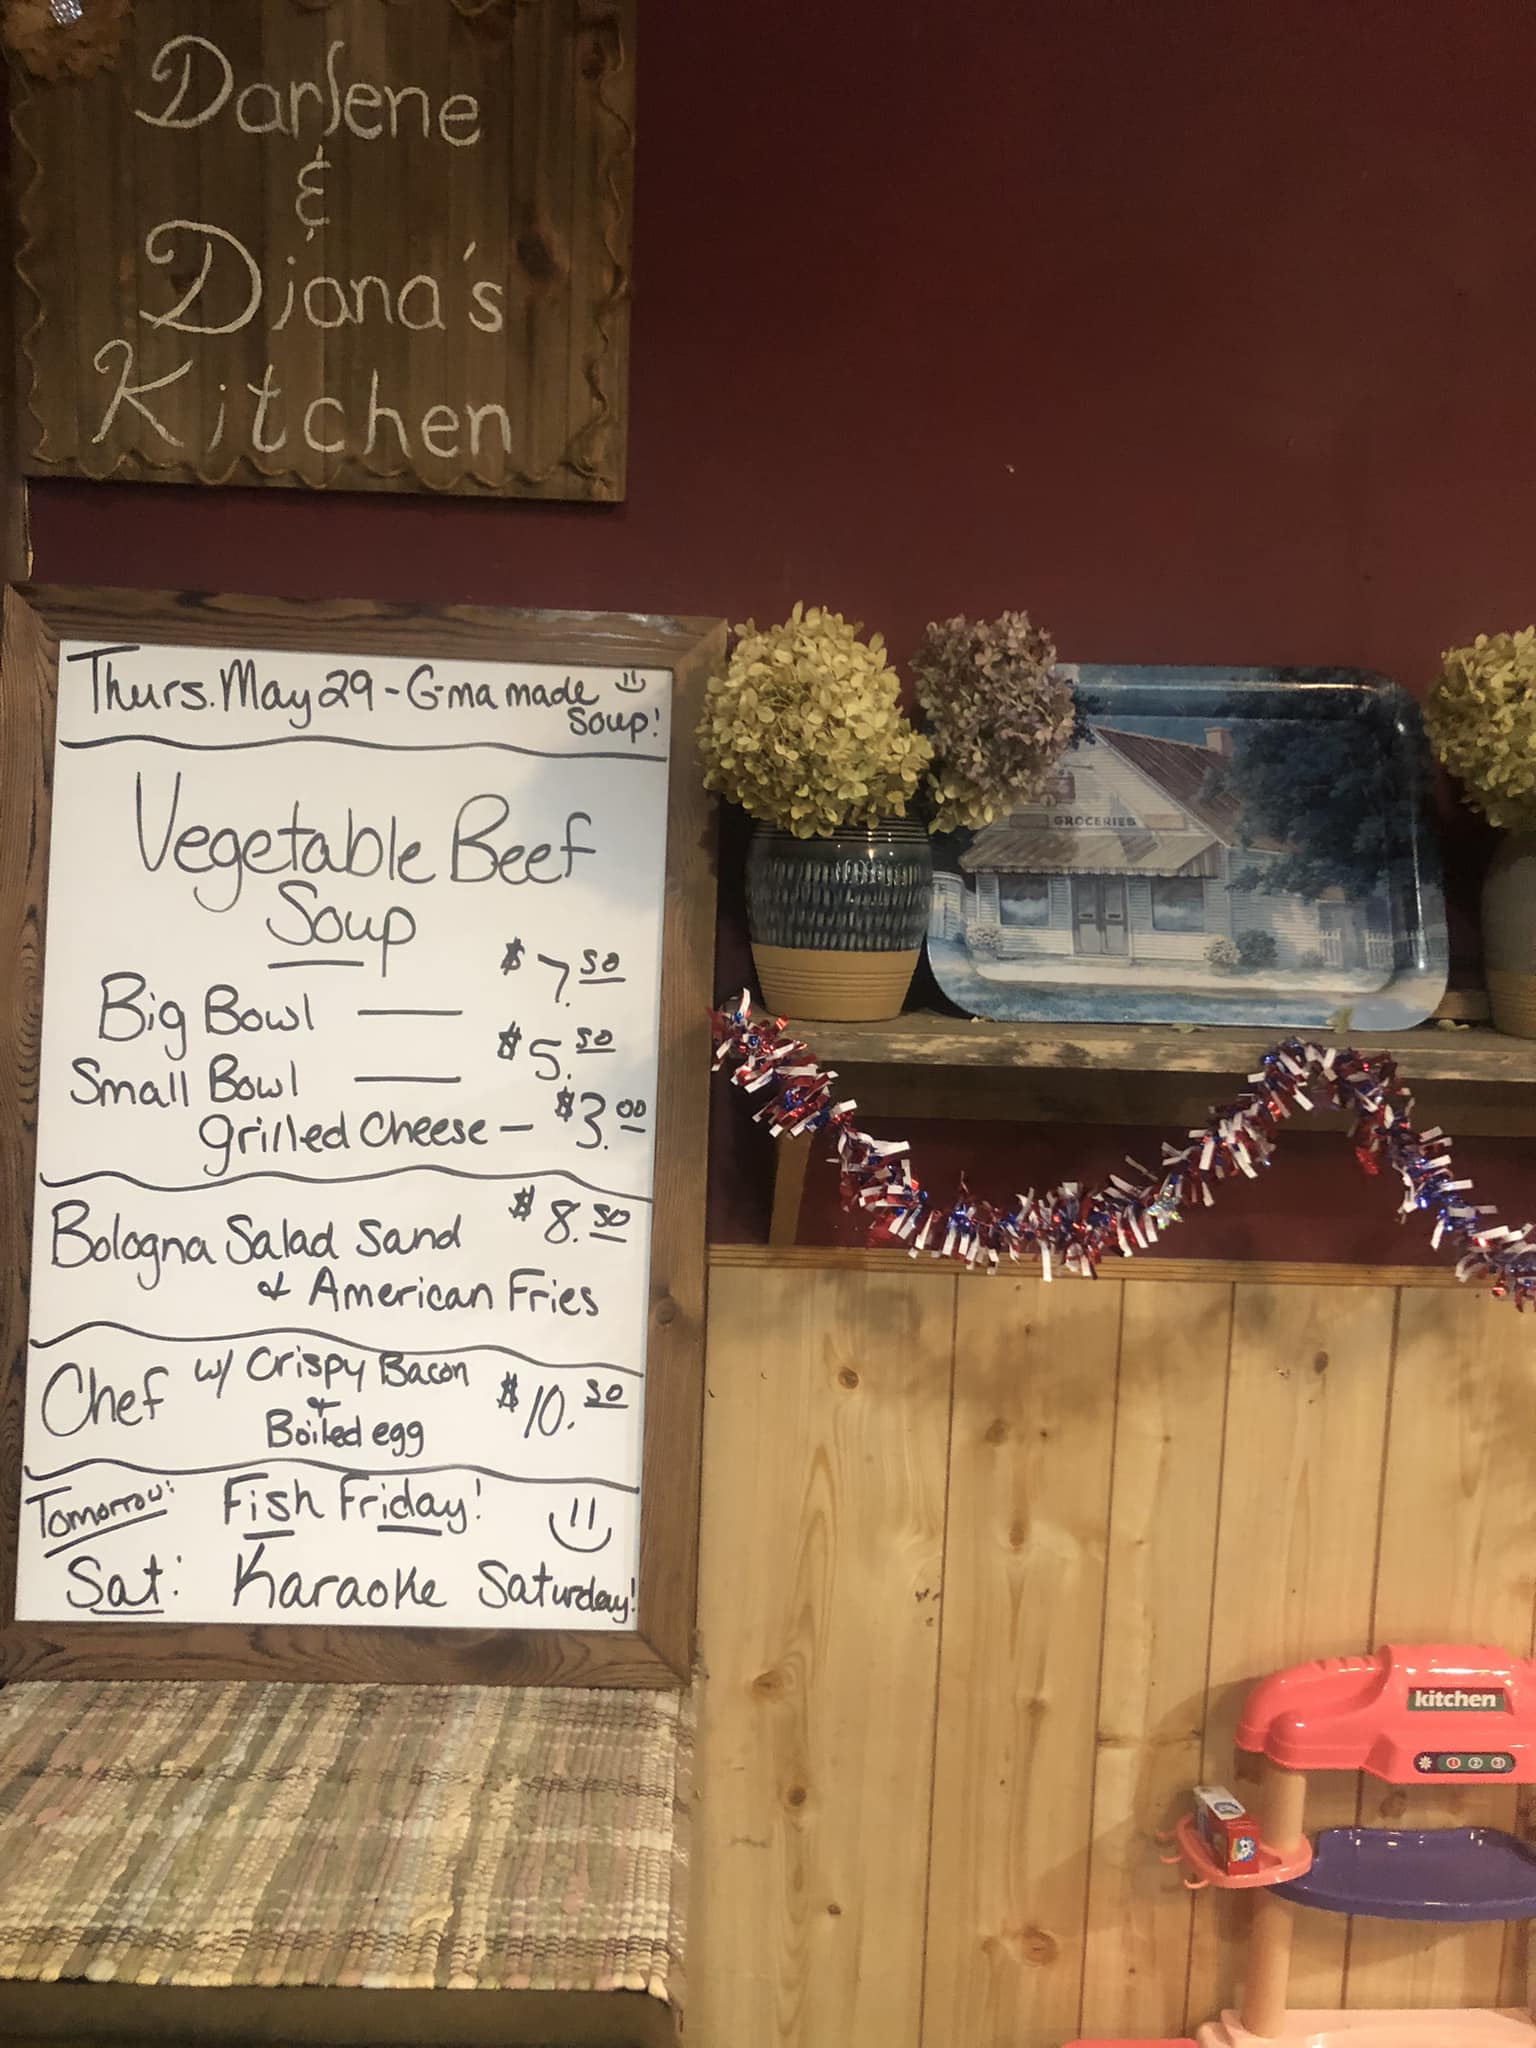 Darlene
&
Diana's
Kitchen
Thurs. May 29 - G-ma made
soup!
Vegetable Beef
Soup
Big Bowl — $7.50
Small Bowl — $5.50
grilled cheese — $3.00
Bologna Salad Sand $8.50
& American Fries
Chef w/ Crispy Bacon $10.50
&
Boiled egg
Tomorrow: Fish Friday!
Sat: Karaoke Saturday!
GROCERIES
kitchen
1 2 3